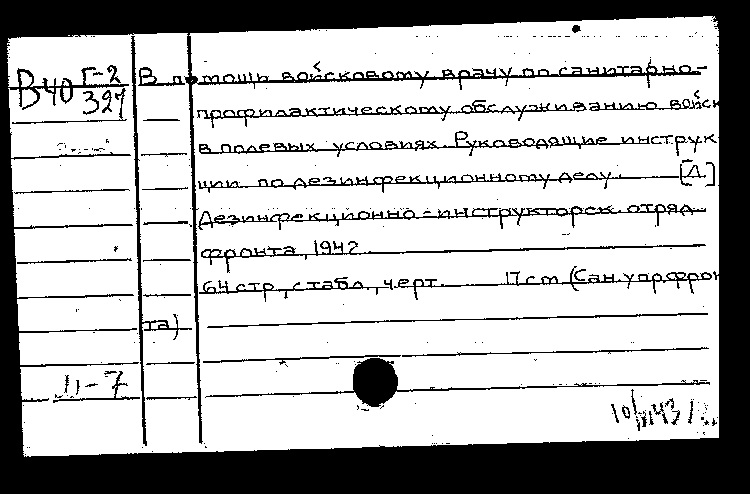 В40 Г-2
327
В помощь войсковому врачу по санитарно-
профилактическому обслуживанию войск
в полевых условиях. Руководящие инструк
ции по дезинфекционному делу. [Л.]
Дезинфекционно-инструкторск. отряд
фронта, 1942.
64 стр., с табл., черт. 17 cm (Сан. упр. фрон
та)
11-7